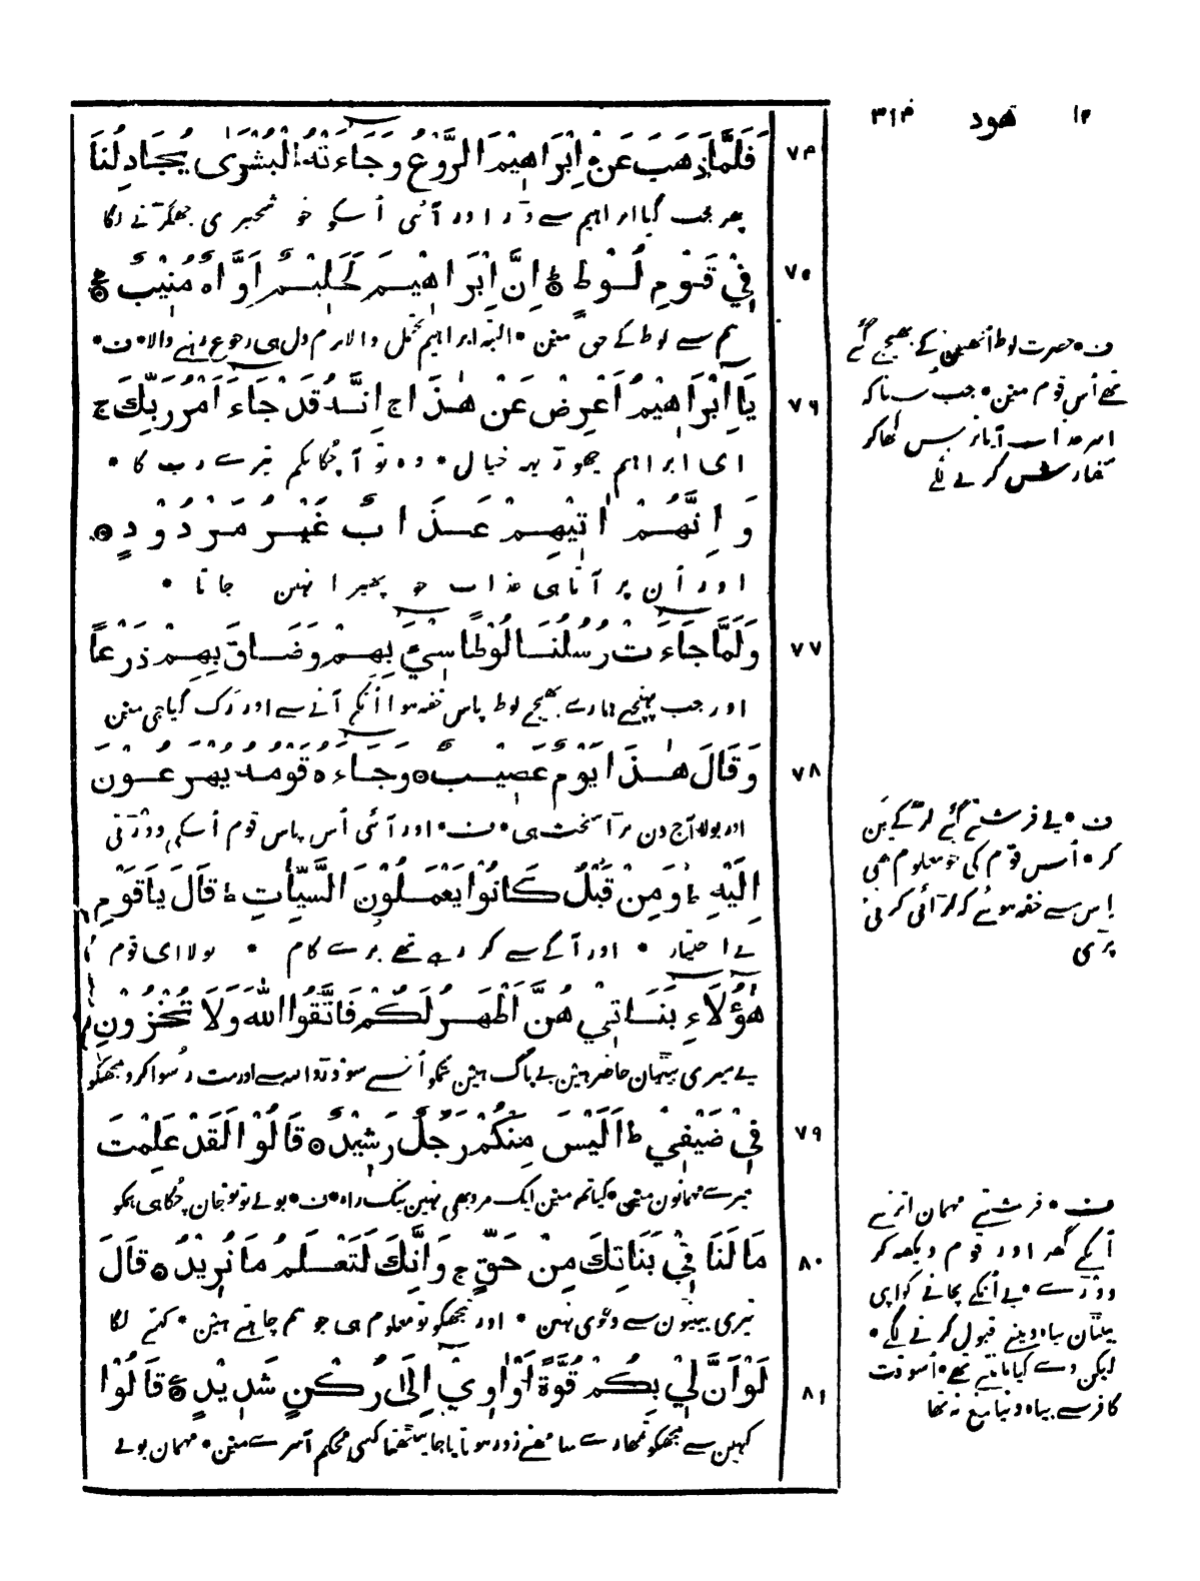 ۱۲ هود ۳۱۴
۷۴ فَلَمَّا ذَهَبَ عَنْ اِبْرَاهِيْمَ الرَّوْعُ وَجَاءَتْهُ الْبُشْرٰى يُجَادِلُنَا
پھر جب گیا ابراہیم سے ڈر اور آئی اُسکو خوشخبری جھگڑنے لگا
۷۵ فِيْ قَوْمِ لُوْطٍ ؕ اِنَّ اِبْرَاهِيْمَ لَحَلِيْمٌ اَوَّاهٌ مُنِيْبٌ
ہم سے لوط کے حق مین • البتہ ابراہیم تحمل والا نرم دل ہی رجوع رہنے والا • ف •
۷۶ يَا اِبْرَاهِيْمُ اَعْرِضْ عَنْ هٰذَا ج اِنَّهُ قَدْ جَاءَ اَمْرُ رَبِّكَ ج
ای ابراہیم چھوڑ یہہ خیال • وہ تو آچکا حکم تیرے رب کا •
وَاِنَّهُمْ اٰتِيْهِمْ عَذَابٌ غَيْرُ مَرْدُوْدٍ
اور اُن پر آتا ہی عذاب جو پھیرا نہین جاتا •
۷۷ وَلَمَّا جَاءَتْ رُسُلُنَا لُوْطًا سِيْءَ بِهِمْ وَضَاقَ بِهِمْ ذَرْعًا
اور جب پہنچے ہمارے بھیجے لوط پاس خفہ ہوا اُنکے آنے سے اور رک گیا جی مین
۷۸ وَقَالَ هٰذَا يَوْمٌ عَصِيْبٌ وَجَاءَهُ قَوْمُهُ يُهْرَعُوْنَ
اور بولا آج دن بڑا سخت ہی • ف • اور آئی اُس پاس قوم اُسکی دوڑتی
اِلَيْهِ ؕ وَمِنْ قَبْلُ كَانُوْا يَعْمَلُوْنَ السَّيِّاٰتِ ؕ قَالَ يَا قَوْمِ
بے اختیار • اور آگے سے کر رہے تھے برے کام • بولا ای قوم
هٰؤُلَاءِ بَنَاتِيْ هُنَّ اَطْهَرُ لَكُمْ فَاتَّقُوا اللّٰهَ وَلَا تُخْزُوْنِ
یے میری بیٹیان حاضر ہین یے پاک ہین تمکو اُنسے سو ڈرو اللہ سے اور مت رُسوا کرو مجھکو
۷۹ فِيْ ضَيْفِيْ ؕ اَلَيْسَ مِنْكُمْ رَجُلٌ رَشِيْدٌ قَالُوْا لَقَدْ عَلِمْتَ
میرے مہمانون مین • کیا تم مین ایک مرد بھی نہین نیک راہ • ف • بولے تو تو جان چُکا ہی ہمکو
۸۰ مَا لَنَا فِيْ بَنَاتِكَ مِنْ حَقٍّ ج وَاِنَّكَ لَتَعْلَمُ مَا نُرِيْدُ قَالَ
تیری بیٹیون سے دعوی نہین • اور تجھکو تو معلوم ہی جو ہم چاہتے ہین • کہنے لگا
۸۱ لَوْ اَنَّ لِيْ بِكُمْ قُوَّةً اَوْ اٰوِيْ اِلٰى رُكْنٍ شَدِيْدٍ قَالُوْا
کہین سے مجھکو تمھارے سامھنے زور ہوتا یا جا بیٹھتا کسی محکم آسرے مین • مہمان بولے
ف • حضرت لوط اُنھین کے بھیجے گئے
تھے اُس قوم مین • جب سنا کہ
اسر عذاب آیا ترس کھا کر
سفارش کرنے لگے
ف • یے فرشتے گئے لڑکے بن
کر • اُس قوم کی خو معلوم تھی
اِس سے خفہ ہوئے کہ لڑائی کرنی
پڑی
ف • فرشتے مہمان اترے
اُنکے گھر اور قوم دیکھہ کر
دوڑے • یے اُنکے بچانے کو اپنی
بیٹیان بیاہ دینے قبول کرنے لگے •
لیکن وے کیا مانتے تھے • اُسوقت
کافر سے بیاہ دنیا منع نہ تھا